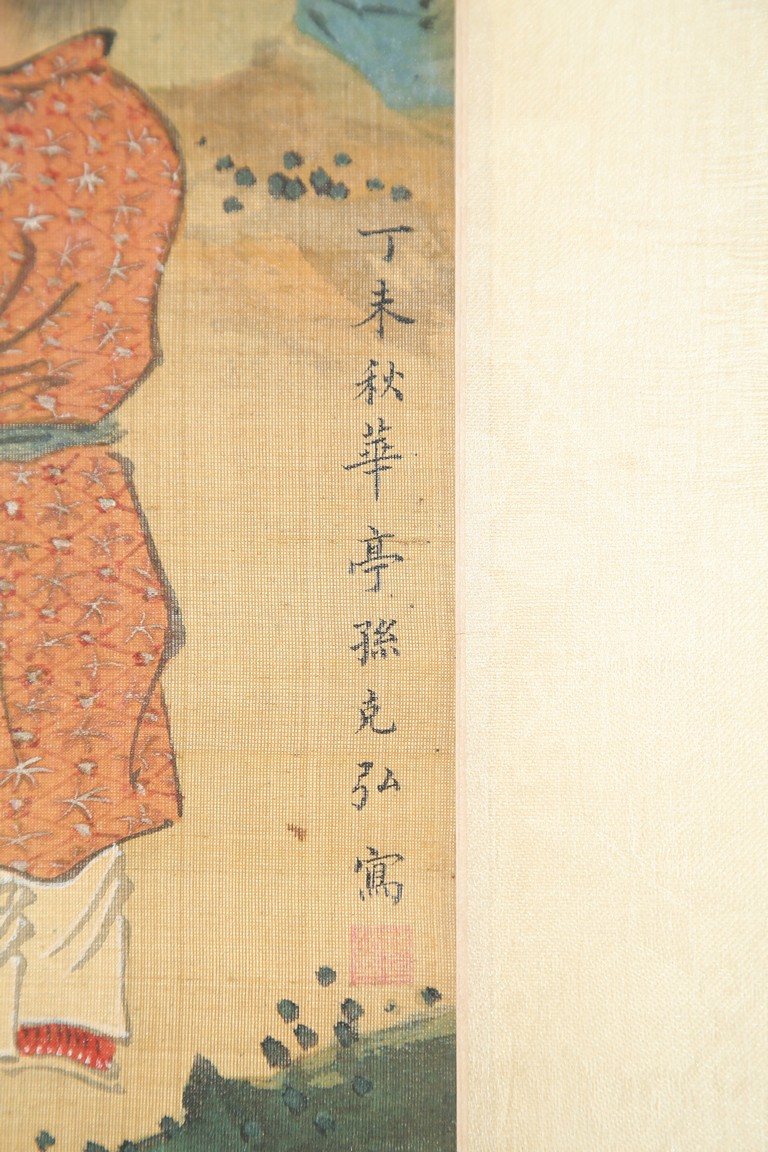 丁未秋華亭孫克弘寫